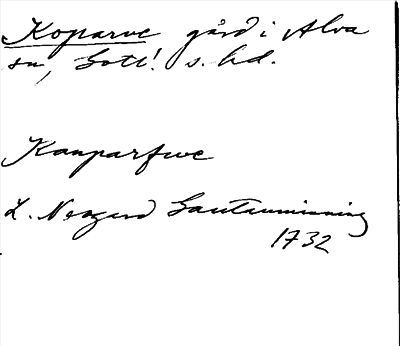 Koparve gård i Alva
sn, Gotl. s. hd.
Kauparfwe
L. Neogard Gautauminning
1732